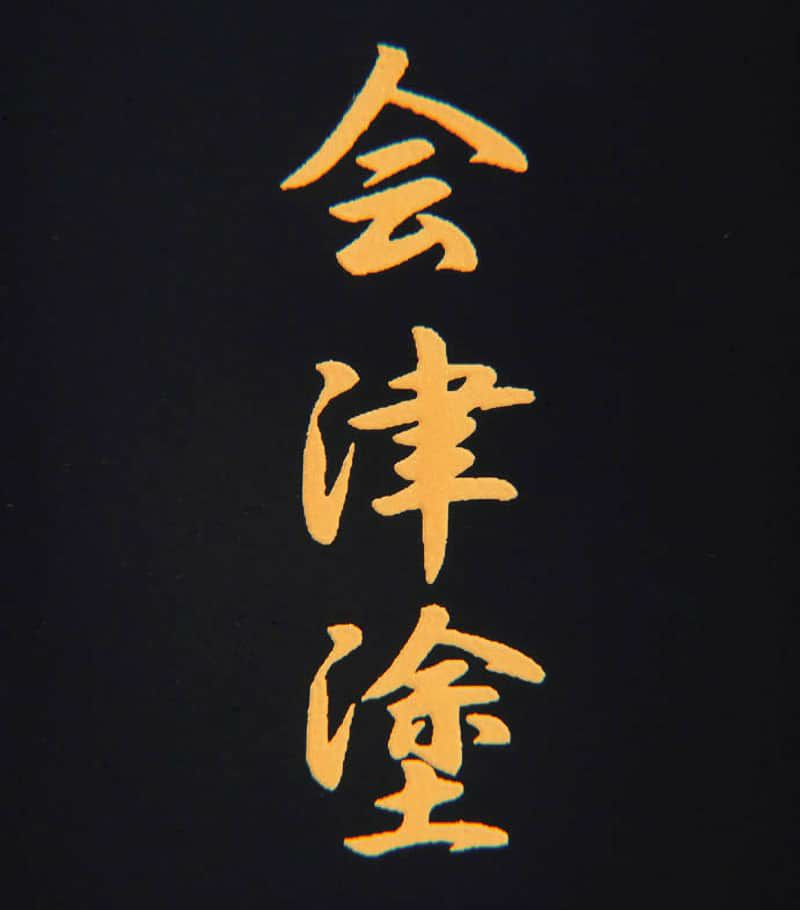 会津塗